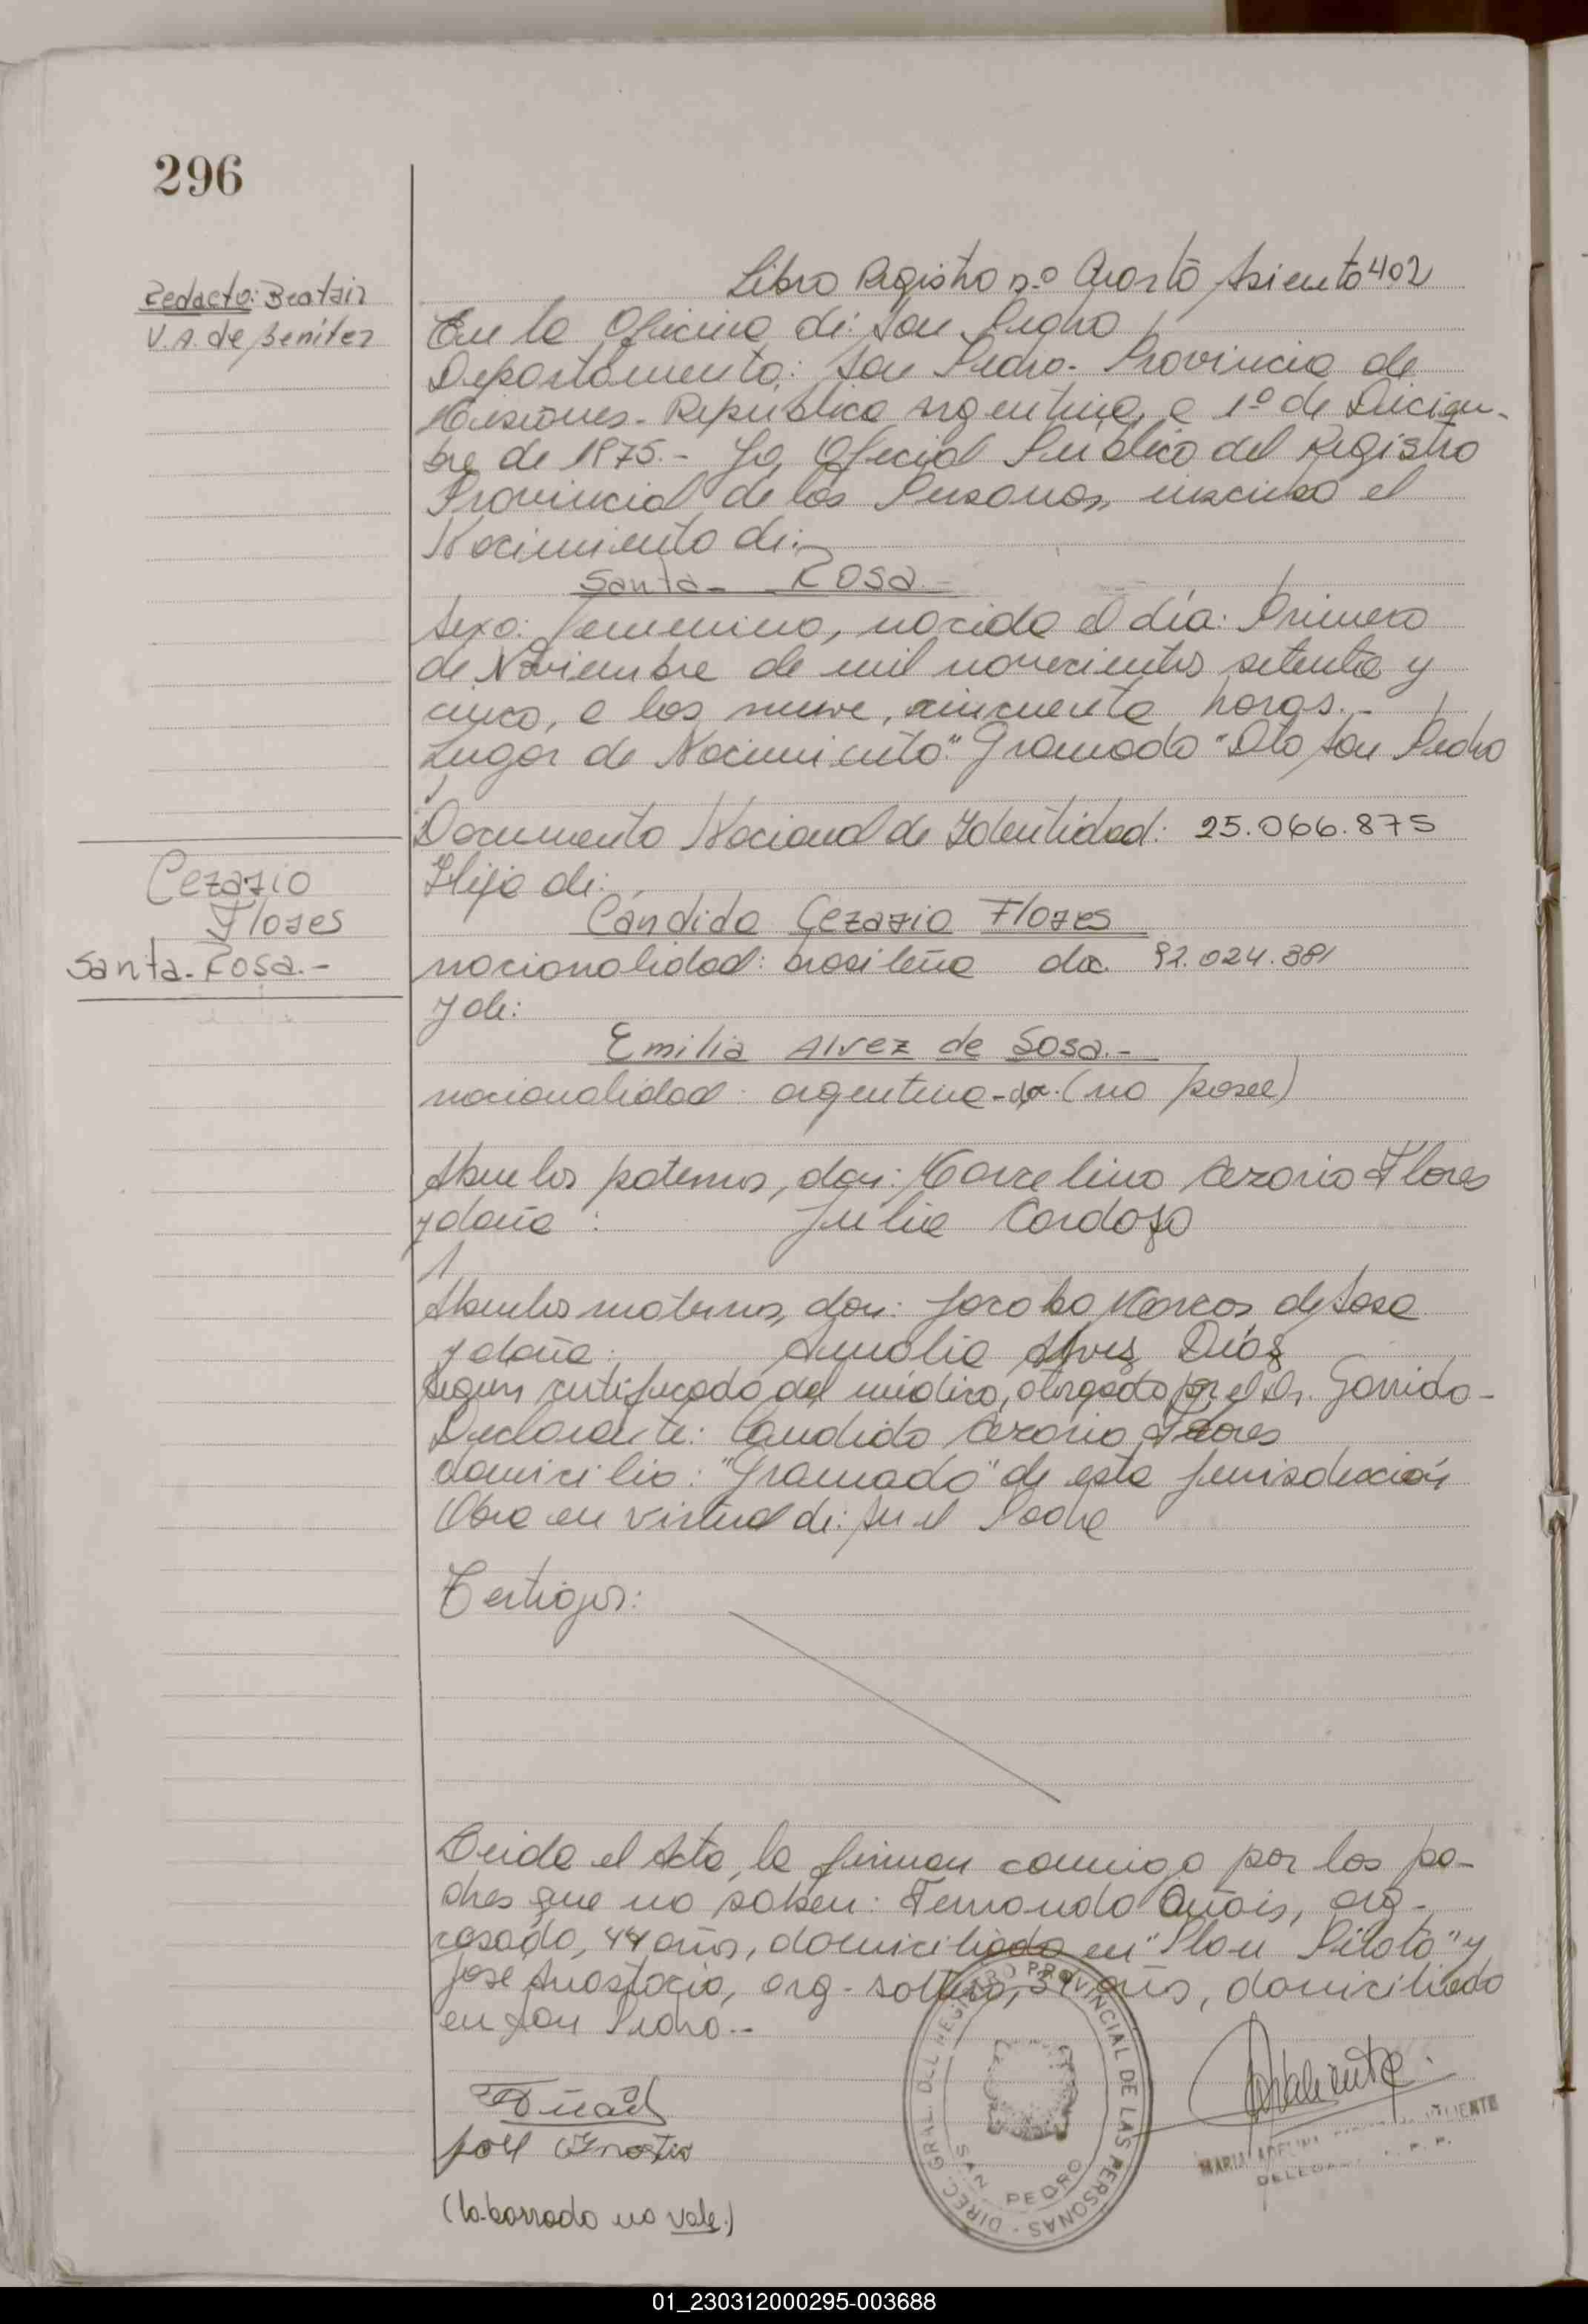 296
Redacto: Beatriz
V. A. de Benítez
Libro Registro n.º Cuarto Asiento 402
En la Oficina de: San Pedro
Departamento: San Pedro - Provincia de
Misiones - República Argentina, a 1º de Diciem-
bre de 1975.- Yo, Oficial Público del Registro
Provincial de las Personas, inscribo el
Nacimiento de:
Santa - Rosa
Sexo: femenino, nacida el día: Primero
de Noviembre de mil novecientos setenta y
cinco, a las nueve, cincuenta horas.-
Lugar de Nacimiento "Gramado" Dto San Pedro
Documento Nacional de Identidad: 25.066.875
Hija de:
Cándido Cezario Flores
nacionalidad: brasileña doc. 92.024.381
y de:
Emilia Alvez de Sosa.-
nacionalidad: argentina - doc. (no posee)
Cezario
Flores
Santa - Rosa.-
Abuelos paternos, don: Marcelino Cezario Flores
y doña: Julia Cardozo
Abuelos maternos, don: Jacobo Marcos de Sosa
y doña: Amalia Alves Días
Según certificado del médico, otorgado por el Dr. Garrido-
Declarante: Candido Cezario Flores
domicilio: "Gramado" de esta jurisdicción
Obra en virtud de: ser el Padre
Testigos:
Leida el Acta, la firman conmigo por los pa-
dres que no saben: Fernando arg-
casado, 44 años, domiciliado en "Plan Piloto" y
José Anastacio, arg- soltero, 34 años, domiciliado
en San Pedro.-
José
(lo borrado no vale.)
DIREC. GRAL. DEL REGISTRO PROVINCIAL DE LAS PERSONAS
SAN PEDRO
MARIA ADELINA VALIENTE
01_230312000295-003688